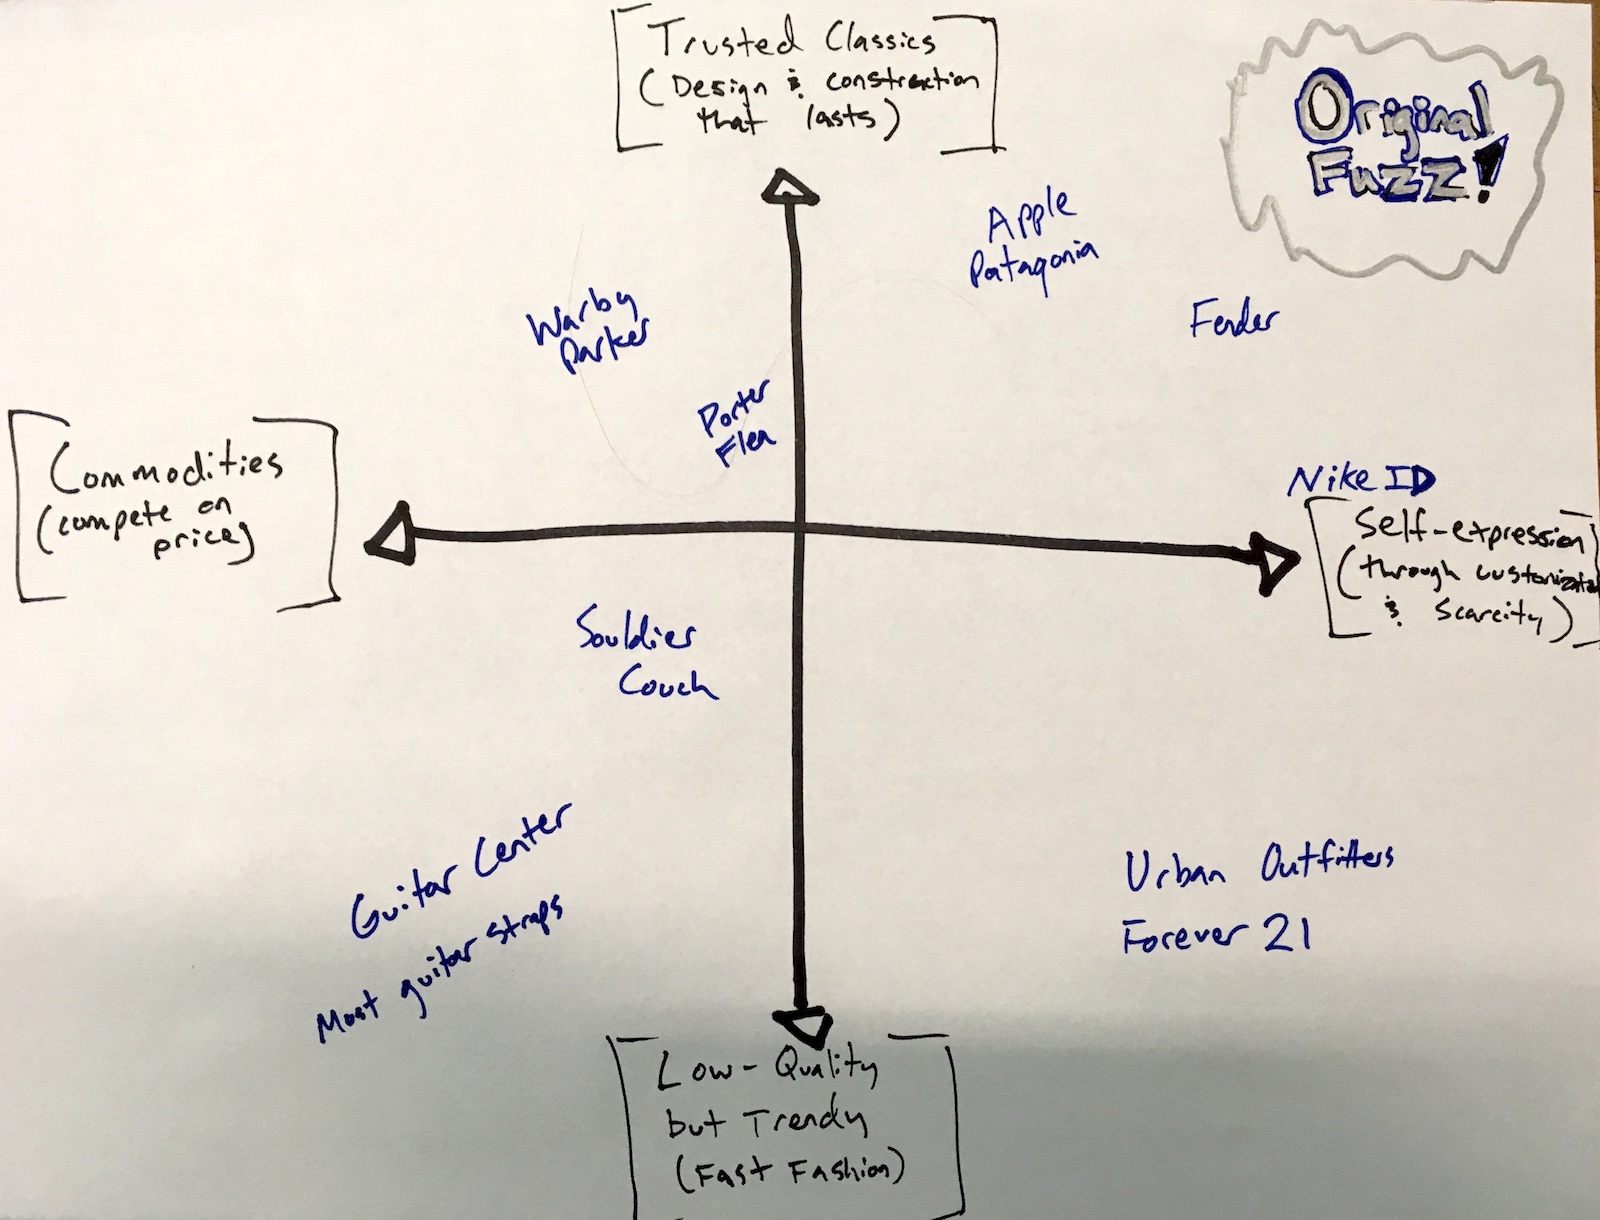 Trusted Classics
(Design & construction
that lasts)
Original
Fuzz!
Apple
Patagonia
Warby
Parker
Fender
Porter
Flea
Commodities
(compete on
price)
Nike ID
Self-expression
(through customization
& Scarcity)
Souldier
Couch
Guitar Center
Most guitar straps
Urban Outfitters
Forever 21
Low-Quality
but Trendy
(Fast Fashion)